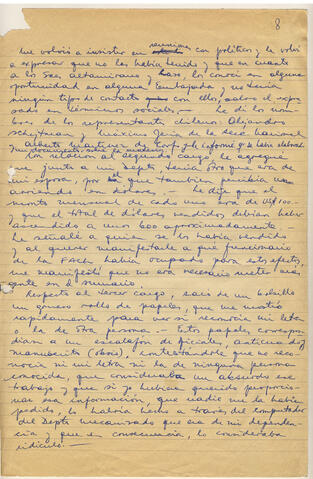 8
me volvió a insistir en reuniones con políticos y le volví
a expresar que no las había tenido y que en cuanto
a los Sres Altamirano y , los conocí en alguna
oportunidad en alguna Embajada y no tenía
ningún tipo de contacto con ellos, salvo el expre-
sado en términos sociales. — Le di los nom-
bres de los representantes chilenos: Alejandro
y Máximo de la Nacional
Alberto Martínez de Corfo
Con relación al segundo cargo, le agregué
que junto a mi Depto. tenía otro que era de
mi esposa, por el que también percibía una
en dólares, — le dije que el
monto mensual de cada uno era de US$ 100.—
y que el total de dólares vendidos, debían haber
ascendido a unos 600 aproximadamente. —
Le señalé a quién se los había vendido
al querer manifestarle a qué funcionario
de la FACh había ocupado para estos efectos,
me manifestó que no era necesario meter más
gente en el sumario. —
Respecto al tercer cargo, sacó de un bolsillo
un grueso rollo de papeles, que me mostró
rápidamente para ver si reconocía mi letra
o la de otra persona. — Estos papeles correspon-
dían a un escalafón de oficiales, anticuado y
manuscrito, contestándole que no reco-
nocía ni mi letra, ni la de ninguna persona
conocida, que consideraba un absurdo ese
trabajo y que si yo hubiera querido proporcio-
nar esa información, que nadie me la había
pedido, lo habría hecho a través del computador
del Depto Mecanizado que era de mi dependen-
cia y que en consecuencia, lo consideraba
ridículo. —